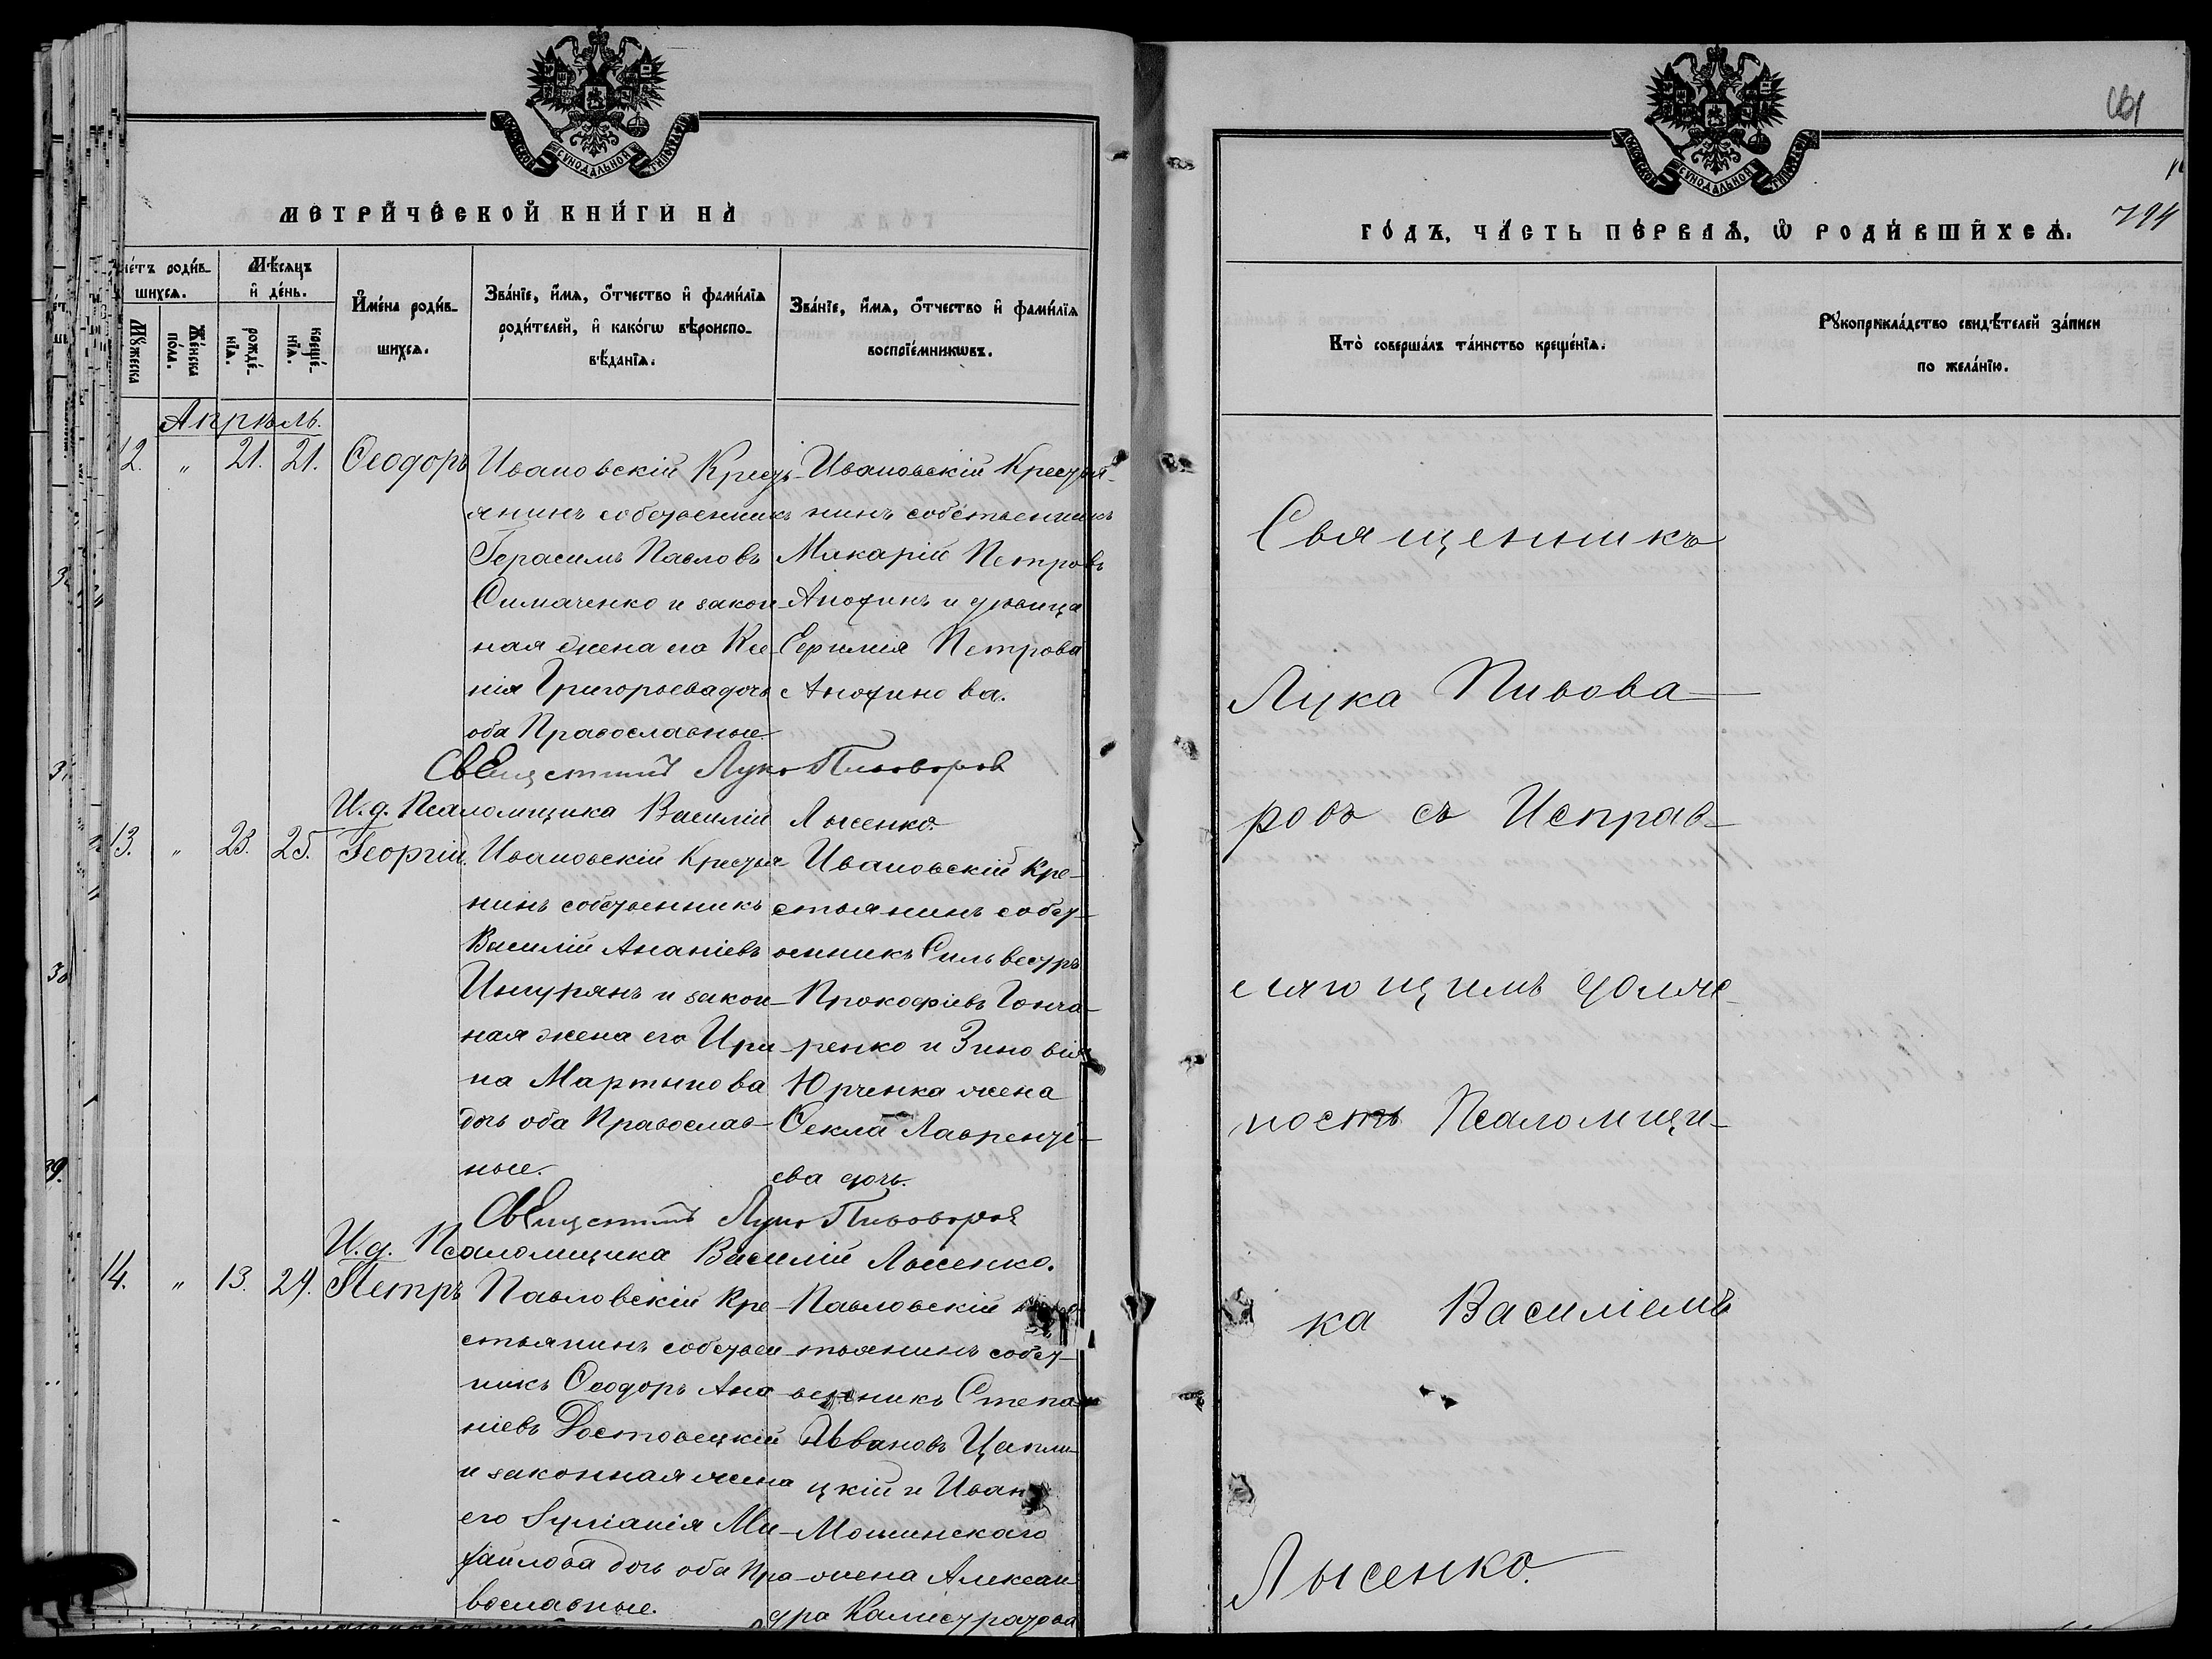 МОСКОВСКОЙ СѴНОДАЛЬНОЙ ТИПОГРАФІИ
МЕТРИ́ЧЕСКОЙ КНИ́ГИ НА̀
Счётъ роди́в-
шихсѧ.
Мꙋ́жеска
Же́нска
по́ла.
Мѣ́сѧцъ
и҆ де́нь.
рожде́-
нїѧ.
креще́-
нїѧ.
И҆мена̀ роди́в-
шихсѧ.
Зва́нїе, и҆́мѧ, ѻ҆́тчество и҆ фами́лїѧ
роди́телей, и҆ како́гѡ вѣроиспо-
вѣ́данїѧ.
Зва́нїе, и҆́мѧ, ѻ҆́тчество и҆ фами́лїѧ
воспрїе́мникѡвъ.
Апрѣль.
12. " 21. 21. Ѳеодоръ
Ивановскій Кресть-
янинъ собственникъ
Герасимъ Павловъ
Симаченко и закон-
ная жена его Ксе-
нія Григорьева дочь
оба Православные.
Ивановскій Крестья-
нинъ собственникъ
Макарій Петровъ
Анохинъ и дѣвица
Евфимія Петрова
Анохинова.
Священникъ Лука Пивоваровъ
И. д. Псаломщика Василій Лысенко.
13. " 23. 25. Георгій.
Ивановскій Крестья-
нинъ собственникъ
Василій Ананіевъ
и закон-
ная жена его Ири-
на Мартынова
дочь оба Православ-
ные.
Ивановскій Кре-
стьянинъ собст-
венникъ Сильвестръ
Прокофіевъ Гонча-
ренко и Зиновія
Юрченка жена
Ѳекла Лаврентіе-
ева дочь.
Священникъ Лука Пивоваровъ
И. д. Псаломщика Василій Лысенко.
14. " 13. 29. Петръ
Павловскій Кре-
стьянинъ собствен-
никъ Ѳеодоръ Ана-
ніевъ Достовецкій
и законная жена
его Ми-
хайлова дочь оба Пра-
вославные.
Павловскій
стьянинъ собст-
венникъ Степанъ
Ивановъ Цапли-
цкій и Ивана
Мошинскаго
жена Алексан-
дра Калистратова
МОСКОВСКОЙ СѴНОДАЛЬНОЙ ТИПОГРАФІИ
794
ГО́ДЪ, ЧА́СТЬ ПЕ́РВАѦ, Ѡ҆ РОДИ́ВШИХСѦ.
Кто̀ соверша́лъ та́инство креще́нїѧ.
Рꙋкоприкла́дство свидѣ́телей за́писи
по жела́нїю.
Священникъ
Лука Пивова-
ровъ съ Исправ-
ляющимъ долж-
ность Псаломщи-
ка Василіемъ
Лысенко.